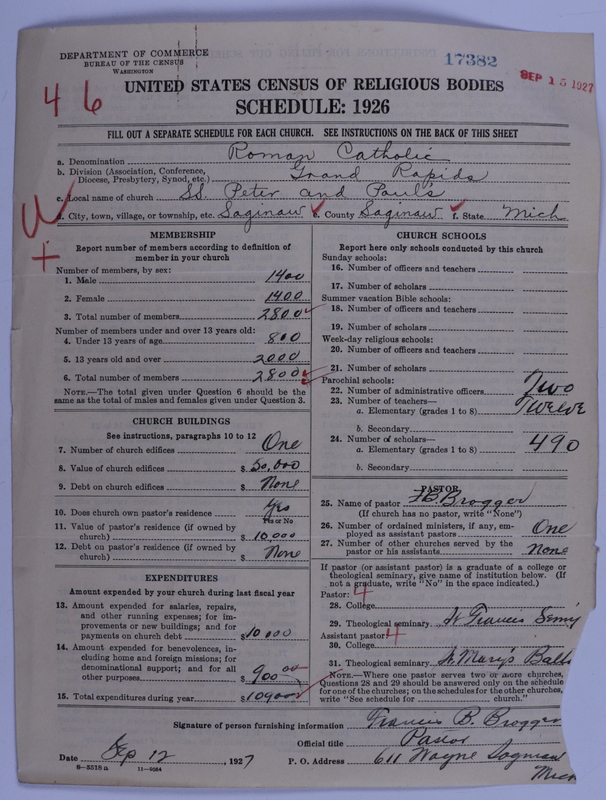 DEPARTMENT OF COMMERCE
BUREAU OF THE CENSUS
WASHINGTON
17382
SEP 15 1927
46
UNITED STATES CENSUS OF RELIGIOUS BODIES
SCHEDULE: 1926
FILL OUT A SEPARATE SCHEDULE FOR EACH CHURCH. SEE INSTRUCTIONS ON THE BACK OF THIS SHEET
a. Denomination Roman Catholic
b. Division (Association, Conference, Diocese, Presbytery, Synod, etc.) Grand Rapids
c. Local name of church SS. Peter and Paul's
d. City, town, village, or township, etc. Saginaw e. County Saginaw f. State Mich
MEMBERSHIP
Report number of members according to definition of
member in your church
Number of members, by sex:
1. Male 1400
2. Female 1400
3. Total number of members 2800
Number of members under and over 13 years old:
4. Under 13 years of age 800
5. 13 years old and over 2000
6. Total number of members 2800
NOTE.—The total given under Question 6 should be
same as the total of males and females given under Question 3.
CHURCH BUILDINGS
See instructions, paragraphs 10 to 12
7. Number of church edifices One
8. Value of church edifices $ 50,000
9. Debt on church edifices $ None
10. Does church own pastor's residence Yes
Yes or No
11. Value of pastor's residence (if owned by
church) $ 10 000
12. Debt on pastor's residence (if owned by
church) $ None
EXPENDITURES
Amount expended by your church during last fiscal year
13. Amount expended for salaries, repairs,
and other running expenses; for im-
provements or new buildings; and for
payments on church debt $ 10 000
14. Amount expended for benevolences, in-
cluding home and foreign missions; for
denominational support; and for all
other purposes $ 900 00
15. Total expenditures during year $ 10900
CHURCH SCHOOLS
Report here only schools conducted by this church
Sunday schools:
16. Number of officers and teachers
17. Number of scholars
Summer vacation Bible schools:
18. Number of officers and teachers
19. Number of scholars
Week-day religious schools:
20. Number of officers and teachers
21. Number of scholars
Parochial schools:
22. Number of administrative officers Two
23. Number of teachers—
a. Elementary (grades 1 to 8) Twelve
b. Secondary
24. Number of scholars—
a. Elementary (grades 1 to 8) 490
b. Secondary
PASTOR
25. Name of pastor F B. Brogger
(If church has no pastor, write "None")
26. Number of ordained ministers, if any, em-
ployed as assistant pastors One
27. Number of other churches served by the
pastor or his assistants None
If pastor (or assistant pastor) is a graduate of a college or
theological seminary, give name of institution below. (If
not a graduate, write "No" in the space indicated.)
Pastor: 4
28. College
29. Theological seminary St Francis Seminy
Assistant pastor 4
30. College
31. Theological seminary St Mary's Balti
NOTE.—Where one pastor serves two or more churches,
Questions 28 and 29 should be answered only on the schedule
for one of the churches; on the schedules for the other churches,
write "See schedule for church."
Signature of person furnishing information Francis B. Brogger
Official title Pastor
Date Sep 12, 1927 P. O. Address 611 Wayne Saginaw
Mich
8—5518a 11—9054